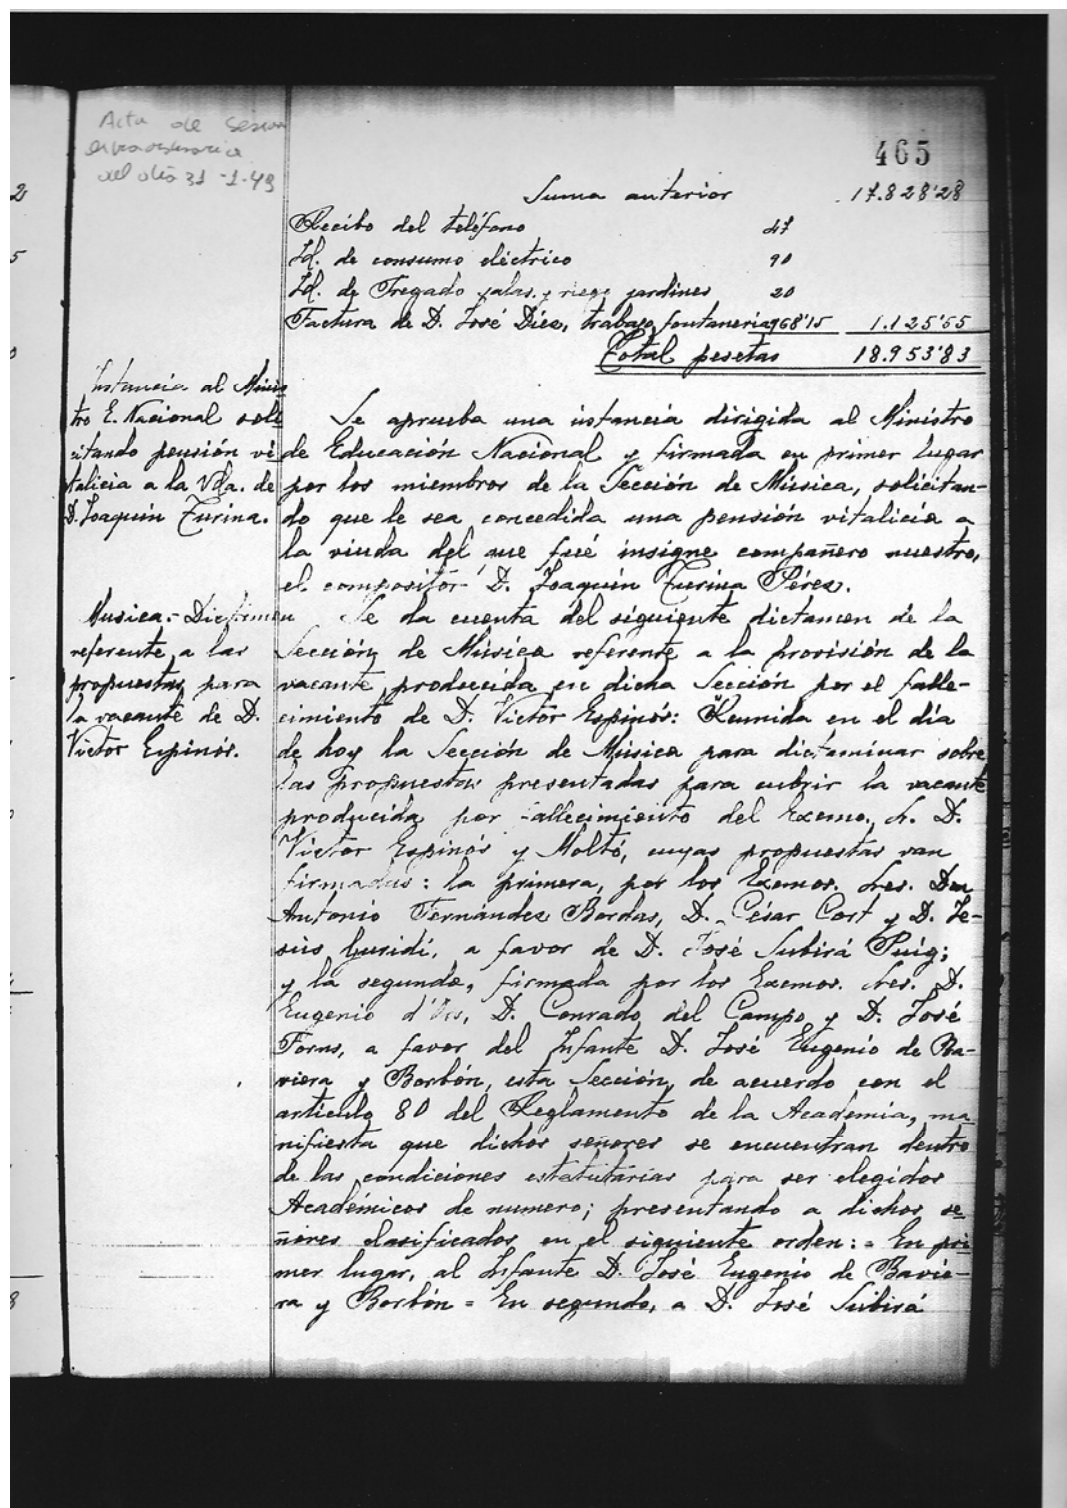 Acta de Sesion
extraordinaria
del dia 31-1-49
465
Suma anterior 17.828'28
Recibo del teléfono 47
Id. de consumo eléctrico 90
Id. de Fregado salas y riego jardines 20
Factura de D. José Díez, trabajo fontaneria 968'15 1.125'55
Total pesetas 18.953'83
Instancia al Minis
tro E. Nacional soli
citando pensión vi
talicia a la Vda. de
D. Joaquín Turina.
Se aprueba una istancia dirigida al Ministro
de Educación Nacional y firmada en primer lugar
por los miembros de la Sección de Música, solicitan-
do que le sea concedida una pensión vitalicia a
la viuda del que fué insigne compañero nuestro,
el compositor D. Joaquín Turina Pérez.
Musica.- Dictamen
referente a las
propuestas para
la vacante de D.
Víctor Espinós.
Se da cuenta del siguiente dictamen de la
Sección de Música referente a la provisión de la
vacante producida en dicha Sección por el falle-
cimiento de D. Víctor Espinós: "Reunida en el día
de hoy la Sección de Música para dictaminar sobre
las propuestas presentadas para cubrir la vacante
producida por fallecimiento del Excmo. Sr. D.
Víctor Espinós y Moltó, cuyas propuestas van
firmadas: la primera, por los Excmos. Sres. Don
Antonio Fernández Bordas, D. César Cort y D. Je-
sús Guridi, a favor de D. José Subirá Puig;
y la segunda, firmada por los Excmos. Sres. D.
Eugenio d'Ors, D. Conrado del Campo y D. José
Forns, a favor del Infante D. José Eugenio de Ba-
viera y Borbón, esta Sección, de acuerdo con el
artículo 80 del Reglamento de la Academia, ma
nifiesta que dichos señores se encuentran dentro
de las condiciones estatutarias para ser elegidos
Académicos de numero; presentando a dichos se
ñores clasificados en el siguiente orden: = En pri
mer lugar, al Infante D. José Eugenio de Bavie-
ra y Borbón = En segundo, a D. José Subirá